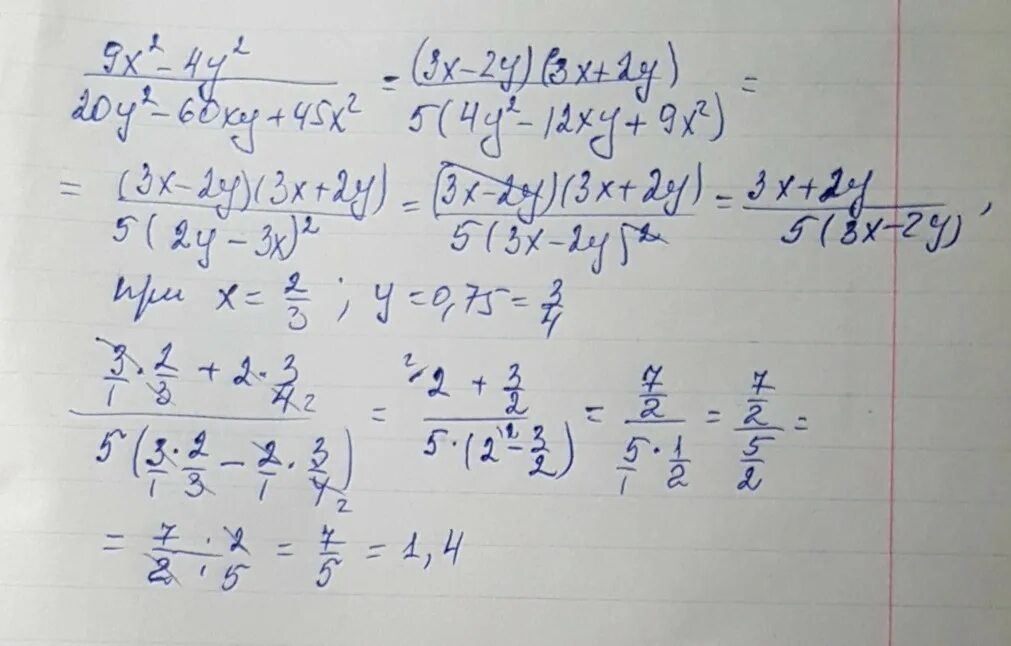 (9x² - 4y²)/(20y² - 60xy + 45x²) = ((3x-2y)(3x+2y))/(5(4y² - 12xy + 9x²)) =
= ((3x-2y)(3x+2y))/(5(2y-3x)²) = ((3x-2y)(3x+2y))/(5(3x-2y)²) = (3x+2y)/(5(3x-2y)),
при x = 2/3; y = 0,75 = 3/4
(3/1 · 2/3 + 2 · 3/4 2)/(5(3/1 · 2/3 - 2/1 · 3/4 2)) = (²⁄2 + 3/2)/(5·(2 ² - 3/2)) = (7/2)/(5/1 · 1/2) = (7/2)/(5/2) =
= 7/2 · 2/5 = 7/5 = 1,4